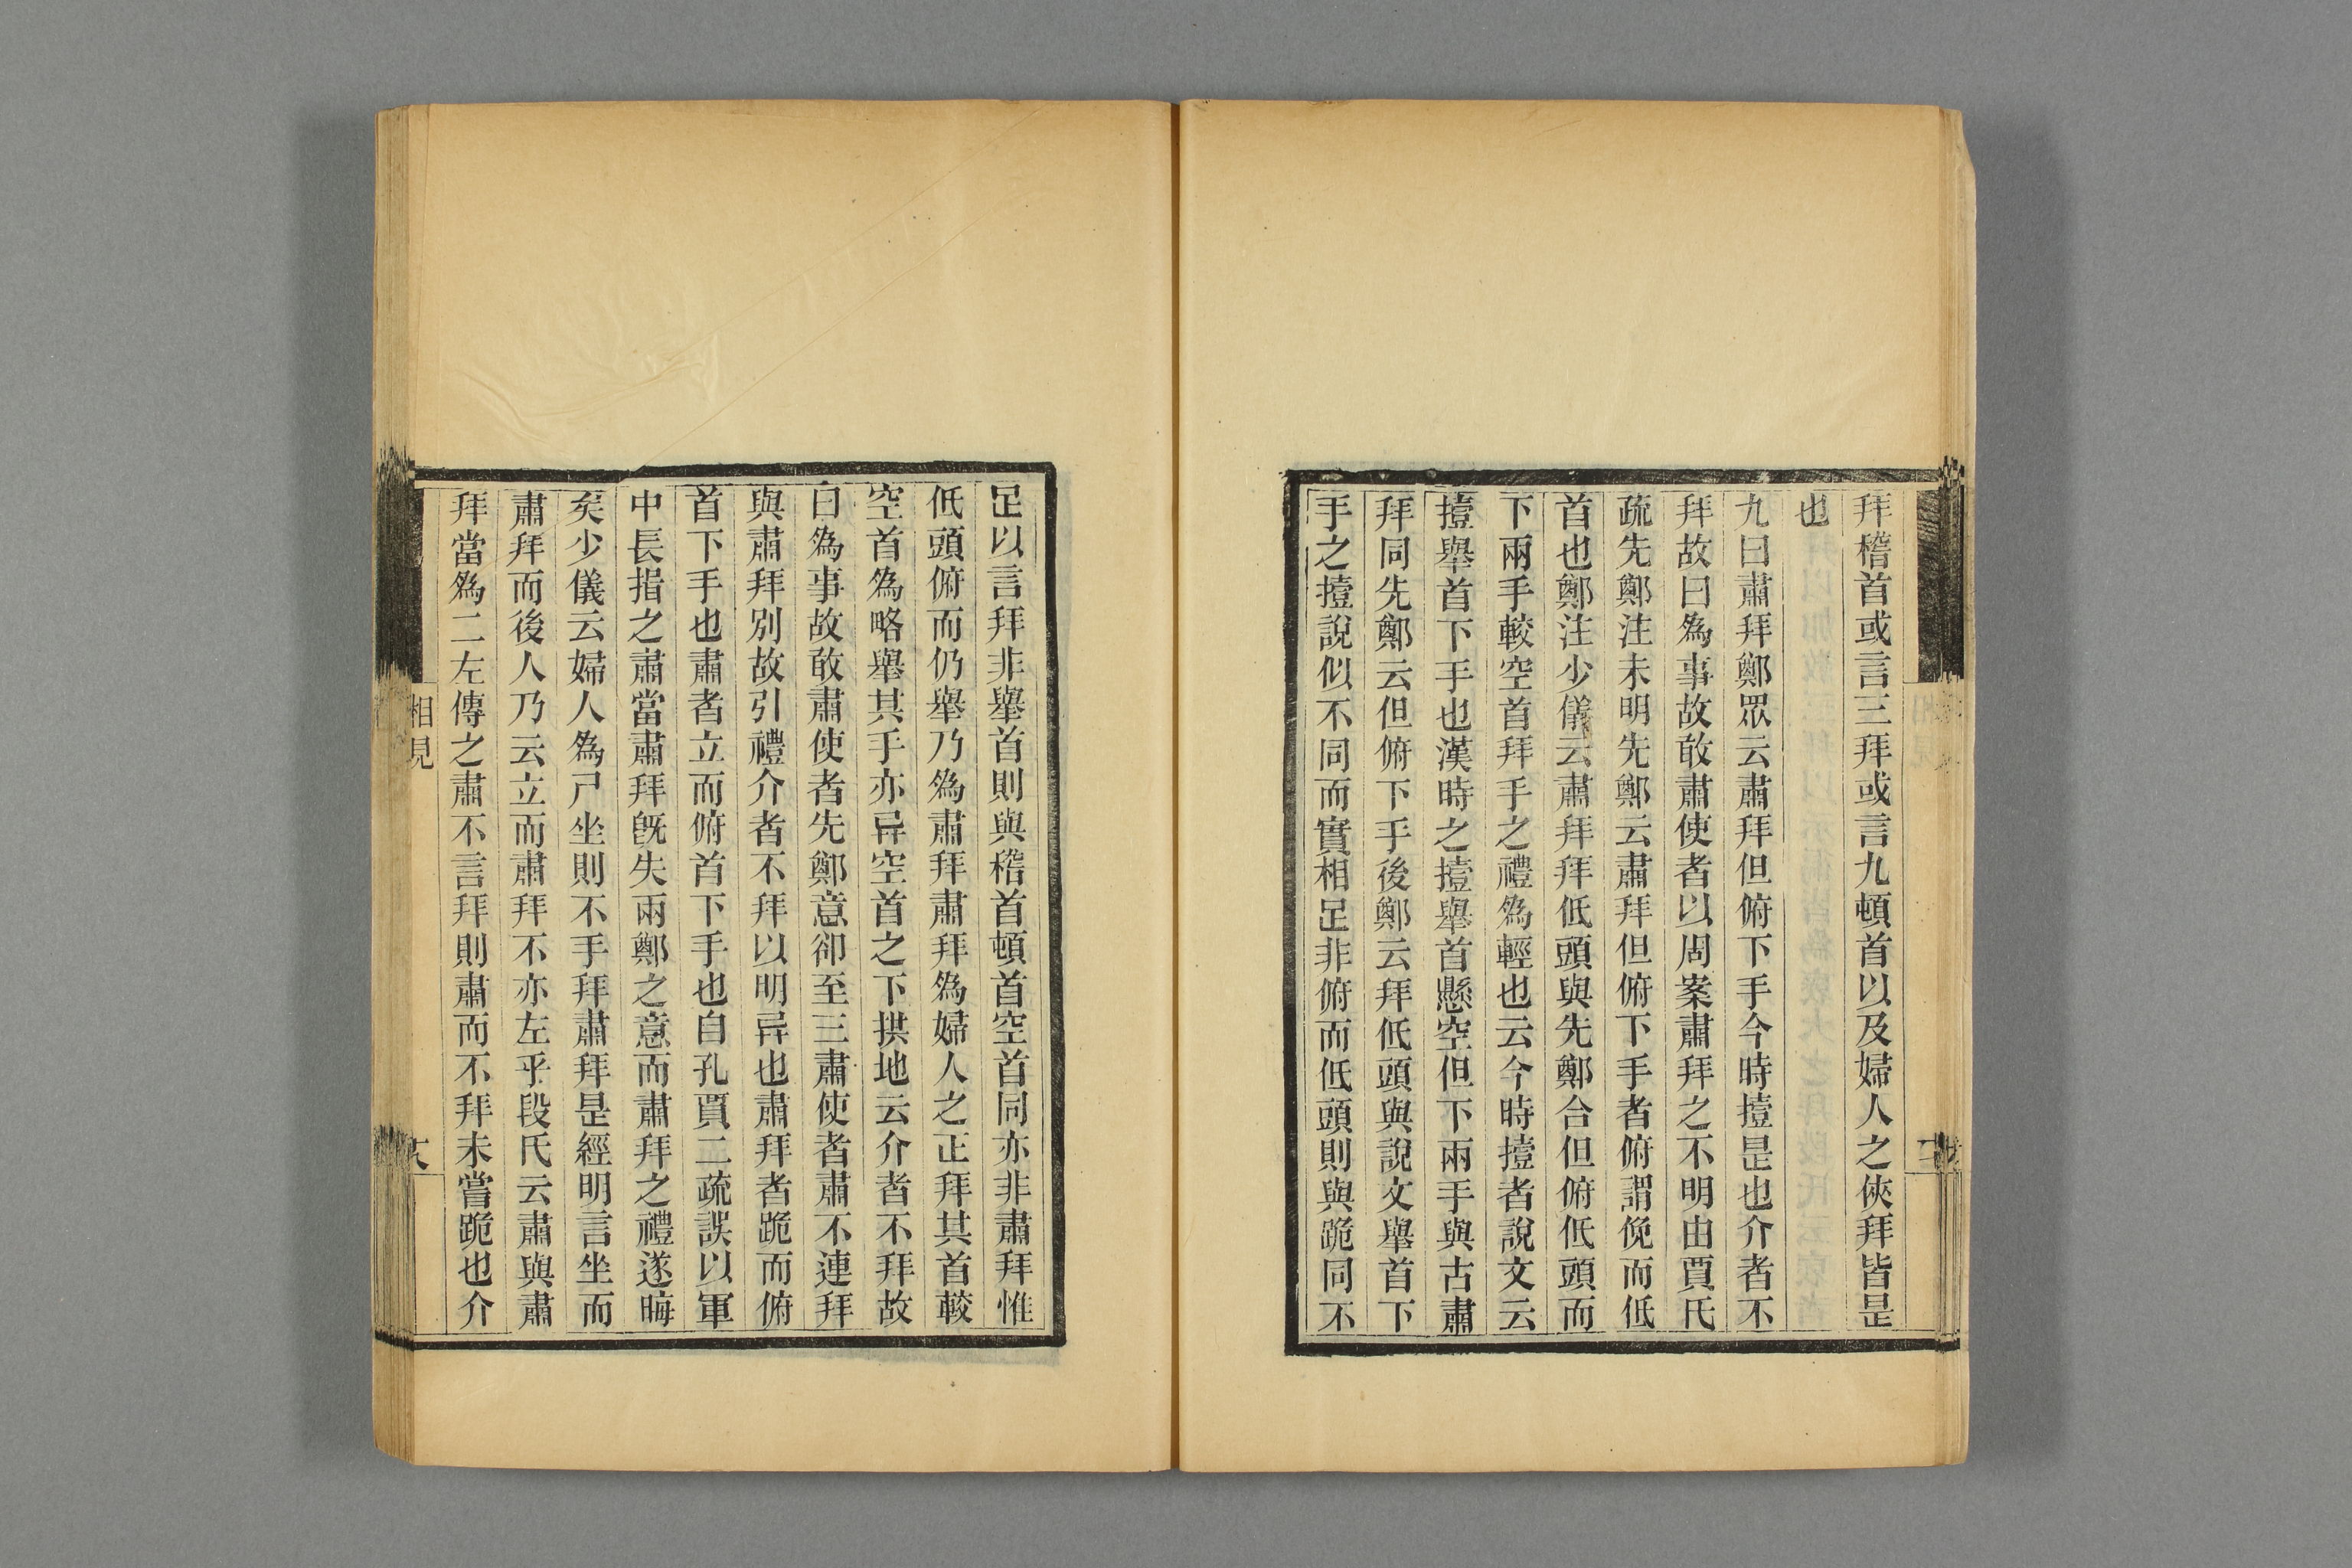 拜稽首或言三拜或言九頓首以及婦人之俠拜皆昰
也
九曰肅拜鄭眾云肅拜但俯下手今時撎昰也介者不
拜故曰爲事故敢肅使者以周案肅拜之不明由賈氏
疏先鄭注未明先鄭云肅拜但俯下手者俯謂俛而低
首也鄭注少儀云肅拜拜低頭與先鄭合但俯低頭而
下兩手較空首拜手之禮爲輕也云今時撎者說文云
撎舉首下手也漢時之撎舉首懸空但下兩手與古肅
拜同先鄭云但俯下手後鄭云拜低頭與說文舉首下
手之撎說似不同而實相足非俯而低頭則與跪同不
足以言拜非舉首則與稽首頓首空首同亦非肅拜惟
低頭俯而仍舉乃爲肅拜肅拜爲婦人之正拜其首較
空首爲略舉其手亦异空首之下拱地云介者不拜故
曰爲事故敢肅使者先鄭意卻至三肅使者肅不連拜
與肅拜別故引禮介者不拜以明异也肅拜者跪而俯
首下手也肅者立而俯首下手也自孔賈二疏誤以軍
中長揖之肅當肅拜旣失兩鄭之意而肅拜之禮遂晦
矣少儀云婦人爲尸坐則不手拜肅拜昰經明言坐而
肅拜而後人乃云立而肅拜不亦左乎段氏云肅與肅
拜當爲二左傳之肅不言拜則肅而不拜未嘗跪也介
相見